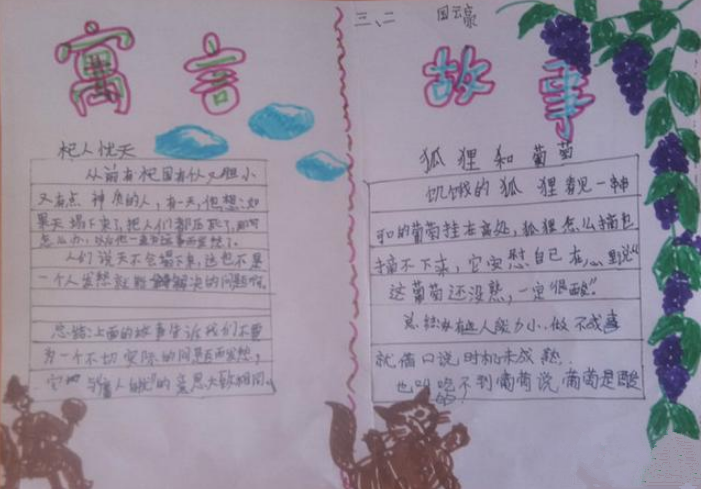 三、二
寓言
故事
杞人忧天
从前有杞国有位又胆小
又有点神质的人,有一天,他想:如
果天塌下来了,把人们都压死了,那可
怎么办,以后他一直为这事而发愁了。
人们说天不会塌下来,这也不是
一个人发愁就能解决的问题啊。
总结:上面的故事告诉我们不要
为一个不切实际的问题而发愁,
它也与"庸人自扰"的意思大致相同。
狐狸和葡萄
饥饿的狐狸看见一串串
的葡萄挂在高处,狐狸怎么摘也
摘不下来,它安慰自己在心里说"
这葡萄还没熟,一定很酸"。
总结:有些人能力小,做不成事
就借口说时机未成熟.
也叫吃不到葡萄说葡萄是酸
的.